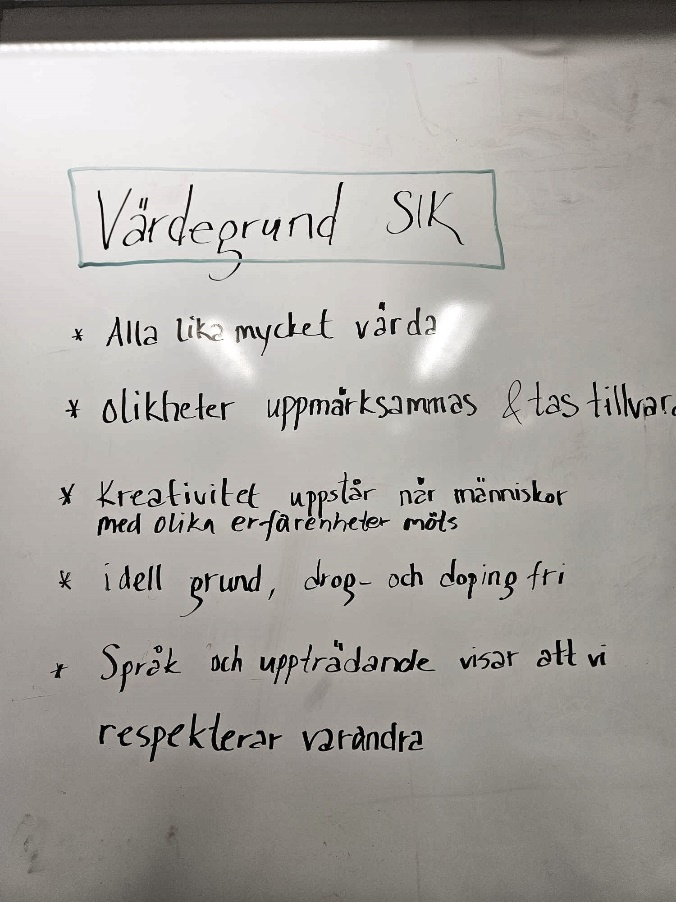 Värdegrund SIK
* Alla lika mycket värda
* olikheter uppmärksammas & tas tillvara
* Kreativitet uppstår när människor
med olika erfarenheter möts
* idell grund, drog- och doping fri
* Språk och uppträdande visar att vi
respekterar varandra